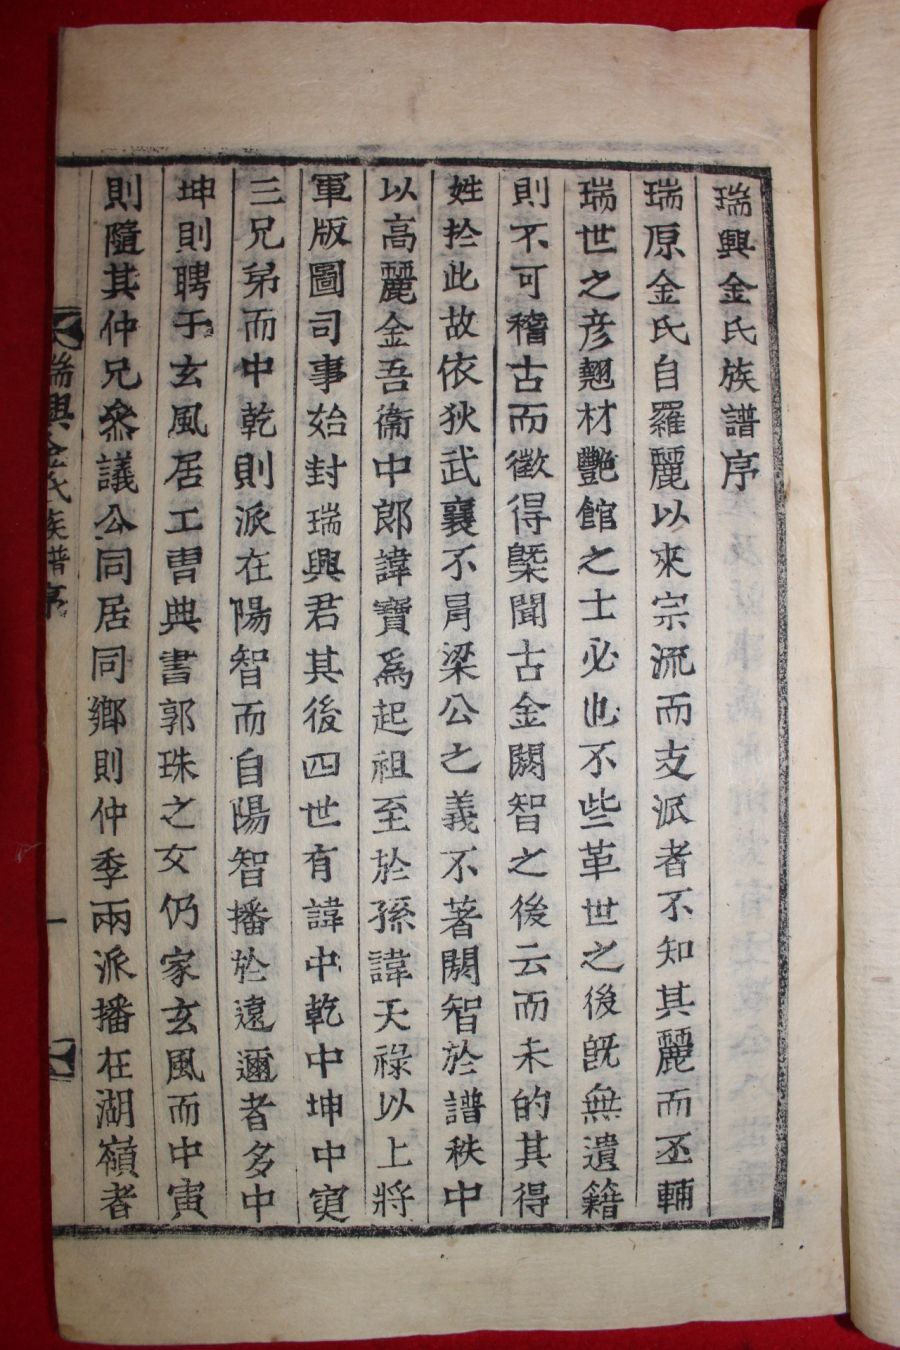 瑞興金氏族譜序
瑞原金氏自羅麗以來宗流而支派者不知其麗而丕輔
瑞世之彦翹材艷館之士必也不些革世之後旣無遺籍
則不可稽古而徵得槩聞古金閼智之後云而未的其得
姓於此故依狄武襄不冐梁公之義不著閼智於譜秩中
以高麗金吾衞中郞諱寶爲起祖至於孫諱天祿以上將
軍版圖司事始封瑞興君其後四世有諱中乾中坤中寅
三兄弟而中乾則派在陽智而自陽智播於遠邇者多中
坤則聘于玄風居工曺典書郭珠之女仍家玄風而中寅
則隨其仲兄叅議公同居同鄕則仲季兩派播在湖嶺者
瑞興金氏族譜序
一